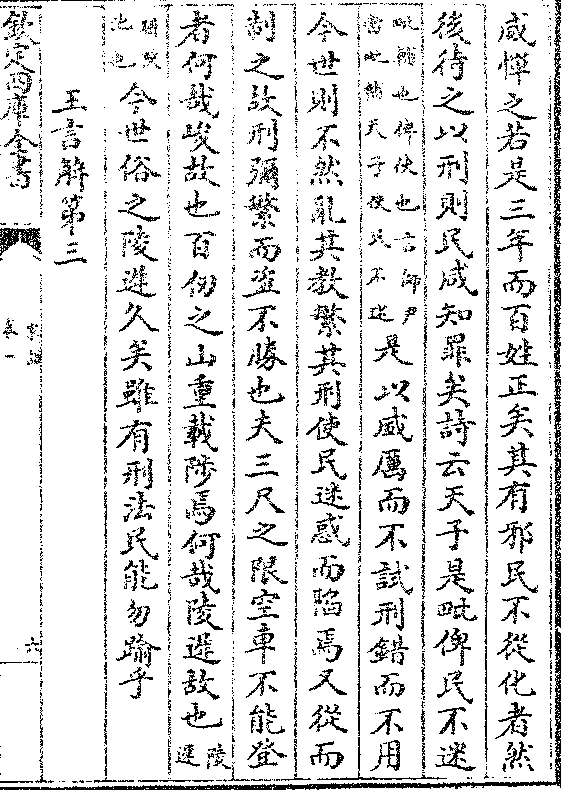 威憚之若是三年而百姓正矣其有邪民不從化者然
後待之以刑則民咸知罪矣詩云天子是毗俾民不迷
毗輔也俾使也言師尹
當毗輔天子使民不迷
是以威厲而不試刑錯而不用
今世則不然亂其教繁其刑使民迷惑而陷焉又從而
制之故刑彌繁而盗不勝也夫三尺之限空車不能登
者何哉峻故也百仞之山重載陟焉何哉陵遲故也
陵
遲
池也
今世俗之陵遲久矣雖有刑法民能勿踰乎
王言解第三
欽定四庫全書
家語
卷一
六